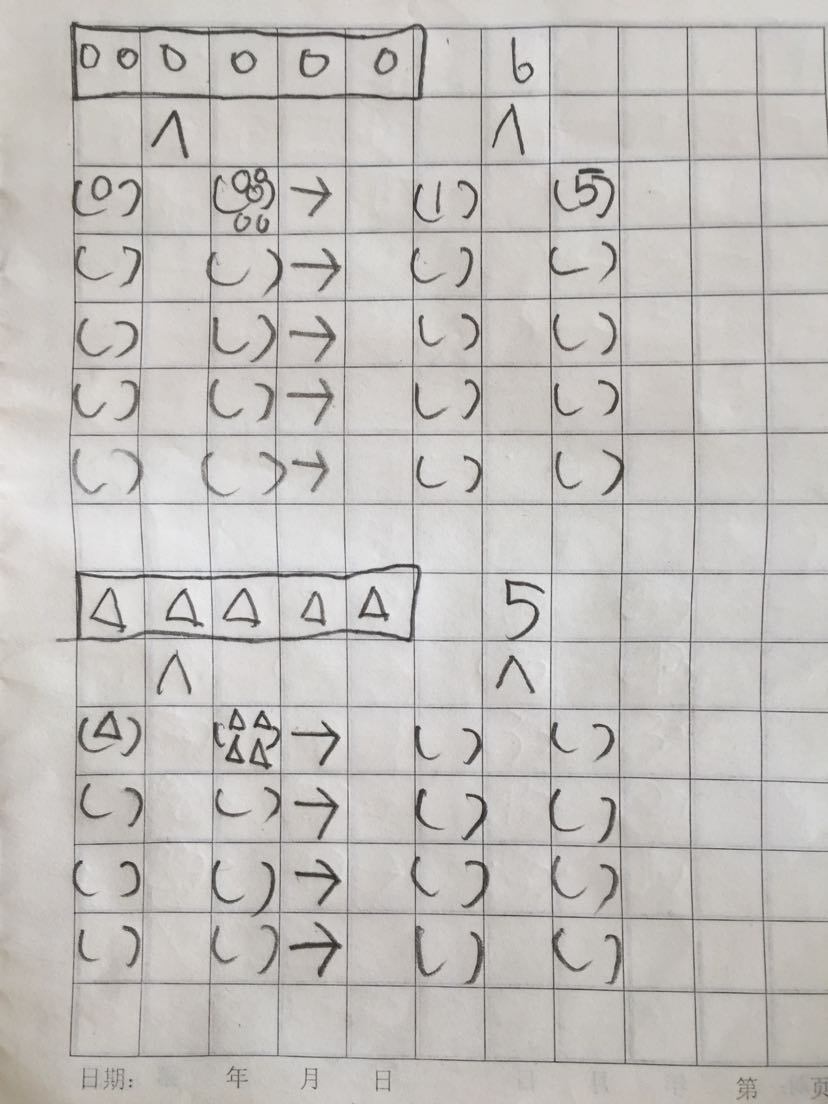 ○ ○ ○ ○ ○ ○ 6
∧ ∧
(○) (○○○○○) → (1) (5)
( ) ( ) → ( ) ( )
( ) ( ) → ( ) ( )
( ) ( ) → ( ) ( )
( ) ( ) → ( ) ( )
△ △ △ △ △ 5
∧ ∧
(△) (△△△△) → ( ) ( )
( ) ( ) → ( ) ( )
( ) ( ) → ( ) ( )
( ) ( ) → ( ) ( )
日期: 年 月 日 第 页